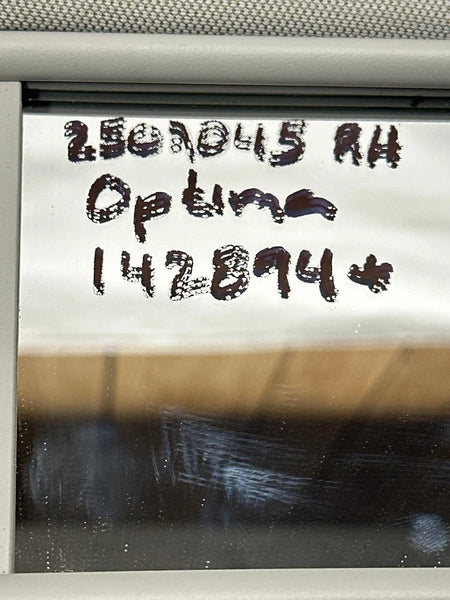 25091045 RH
Optima
142894*